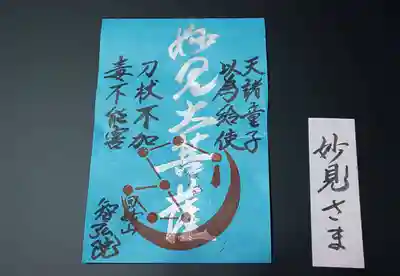 天諸童子
以為給使
妙見大菩薩
刀杖不加
毒不能害
智弘院
妙見さま